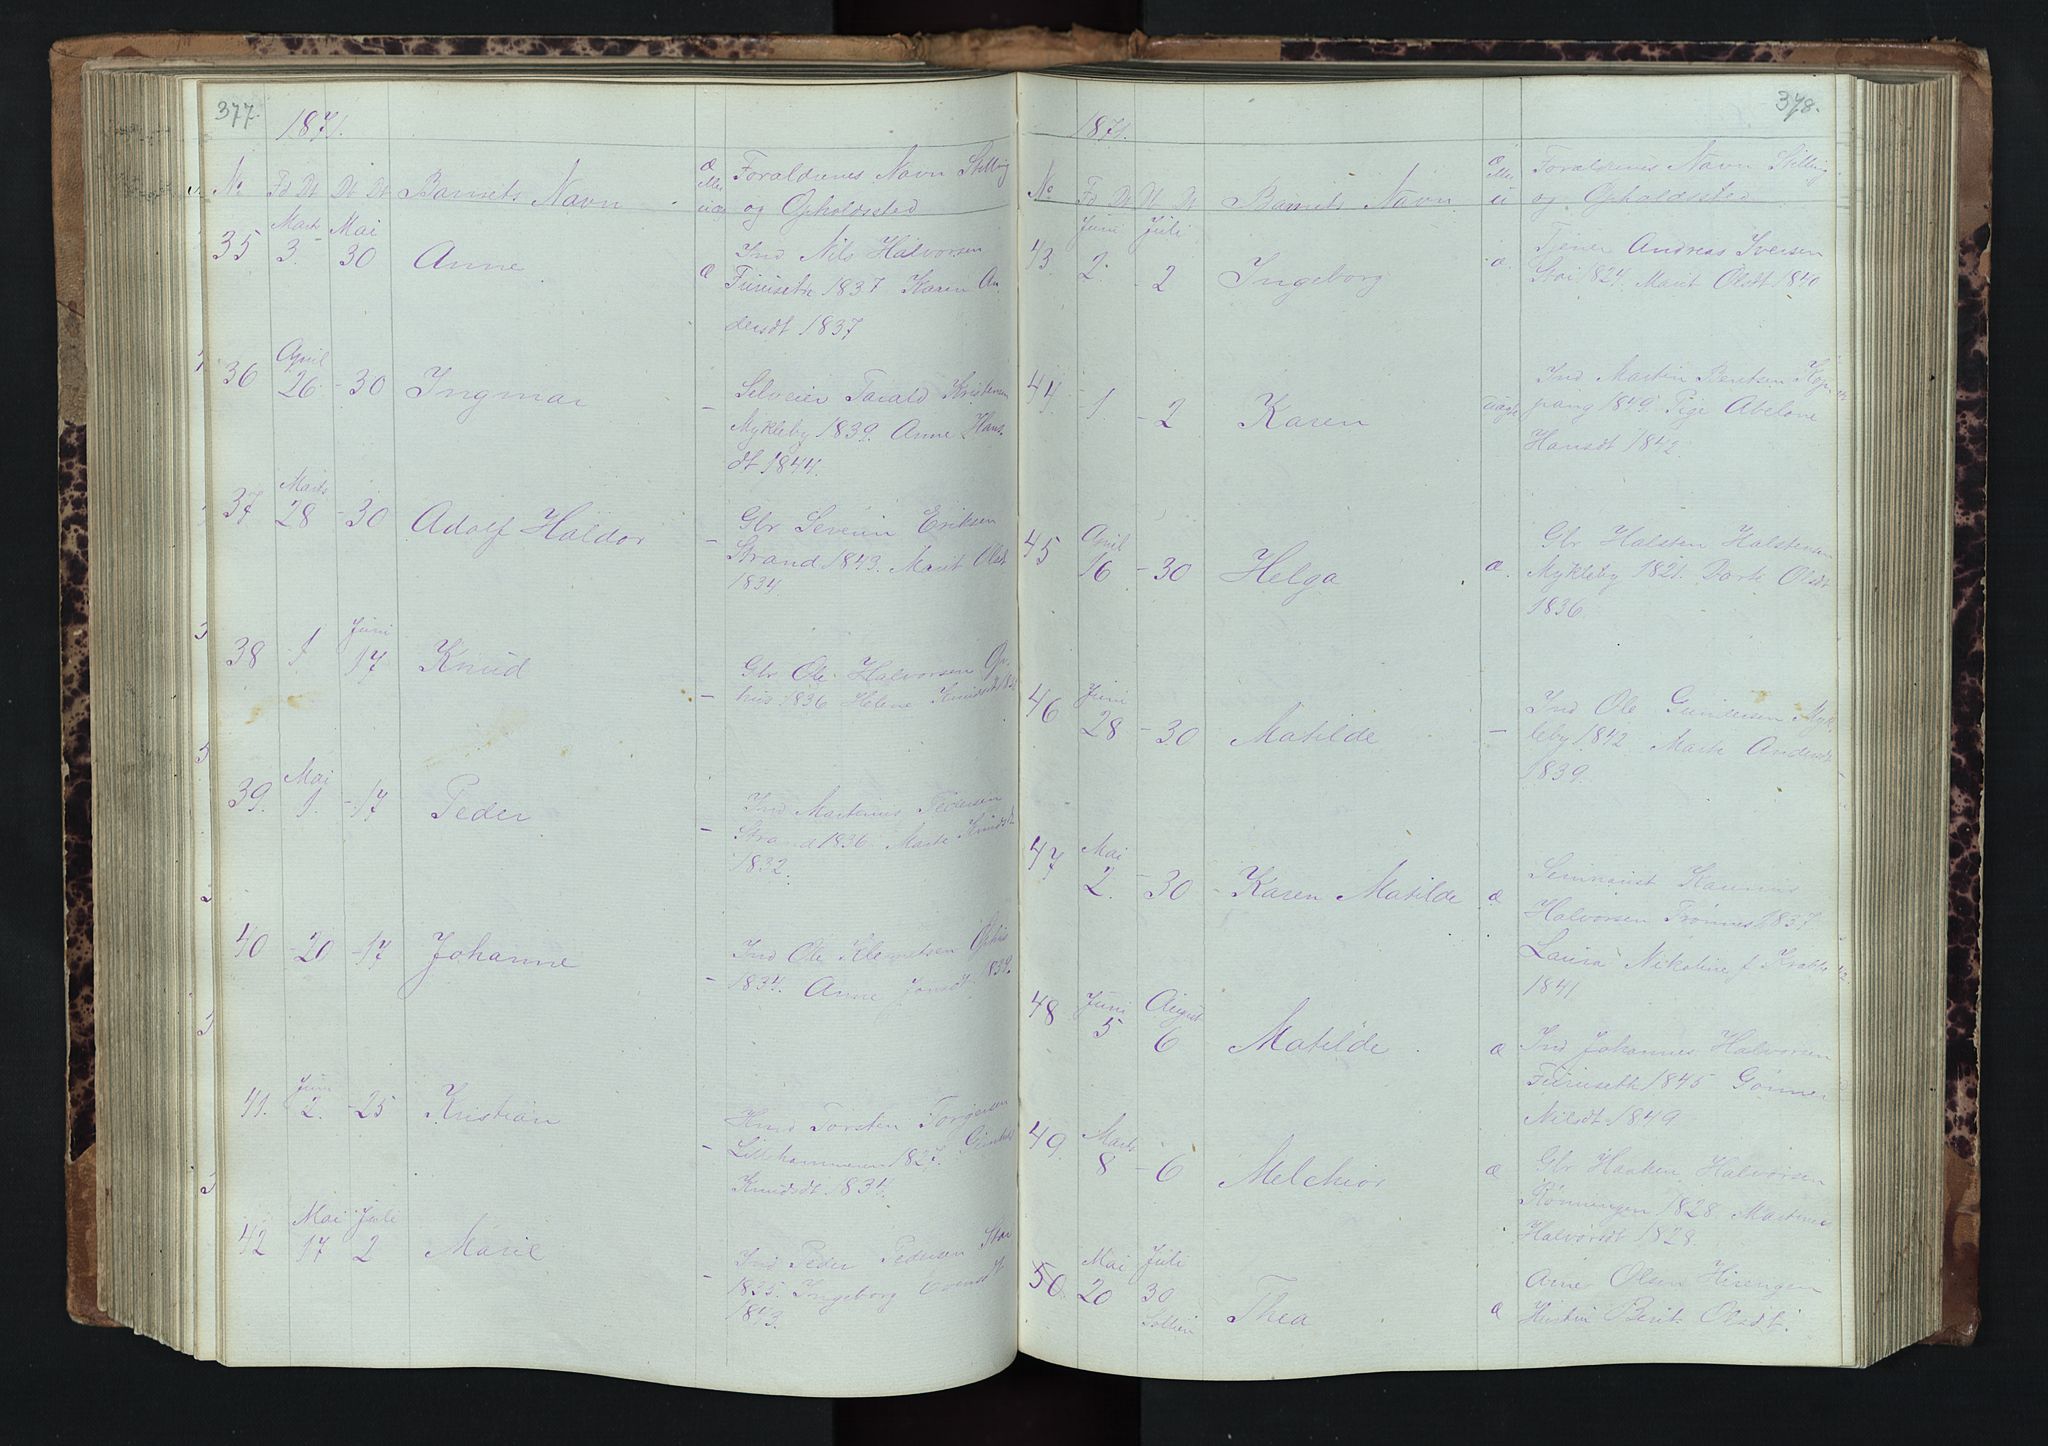 377.
1871.
No Fd Dt Dt Dt Barnets Navn æ eller uæ Forældrenes Navn Stilling
og Opholdssted
35 Marts 3. Mai 30 Anne æ Ind Nils Halvorsen
Furuseth 1837 Karen An-
dersdt 1837
36 April 26 - 30 Ingmar - Selveier Tarald Kristensen
Mykleby 1839. Anne Hans-
dt 1844.
37 Marts 28 - 30 Adolf Haldor - Gbr Severin Eriksen
Strand 1843. Marit Olsdt
1834
38 - 1 Juni 17 Knud - Gbr Ole Halvorsen Op-
hus 1836 Helene Knudsdt
39. Mai 1. - 17 Peder - Ind Martinus Pedersen
Strand 1836. Marte Knudsdt
1832.
40 - 20 - 17 Johanne - Ind Ole Klemetsen Ophus
1834. Anne Jonsdt 1839.
41. Juni 2. - 25 Kristian - Hmd Torsten Torgersen
Lillehammeren 1827. Gunhild
Knudsdt. 1834.
42 Mai 17 Juli 2 Marie - Ind Peder Pedersen Stai
1835. Ingeborg Evensdt
1843.
378.
1871.
No Fd Dt Dt Dt Barnets Navn æ eller u Forældrenes Navn Stilling
og Opholdssted
43 Juni 2. Juli 2 Ingeborg æ. Tjener Andreas Iversen
Stai 1824. Marit Olsdt 1840
44 - 1 - 2 Karen uægte Ind Martin Bentsen Kop-
pang 1849. Pige Abelone
Hansdt 1842.
45 April 16 - 30 Helga æ. Gbr Halsten Halstensen
Mykleby 1821. Dorte Olsdt
1836.
46 Juni 28 - 30 Matilde - Ind Ole Gundersen Myk-
leby 1842 Marte Andersdt
1839.
47 Mai 2. - 30 Karen Matilde æ Seminarist
Halvorsen Trønnes 1837
Laura Nikoline f
1841
48 Juni 5 August 6 Matilde æ Ind Johannes Halvorsen
Furuseth 1845 Gønner
Nilsdt 1849
49. Marts 8 - 6 Melchior æ Gbr Haaken Halvorsen
Rønningen 1828. Martine
Halvorsdt 1828.
50. Mai 20 Juli 30 Sollien Thea æ Arne Olsen Hirengen
Hustru Berit Olsdt.